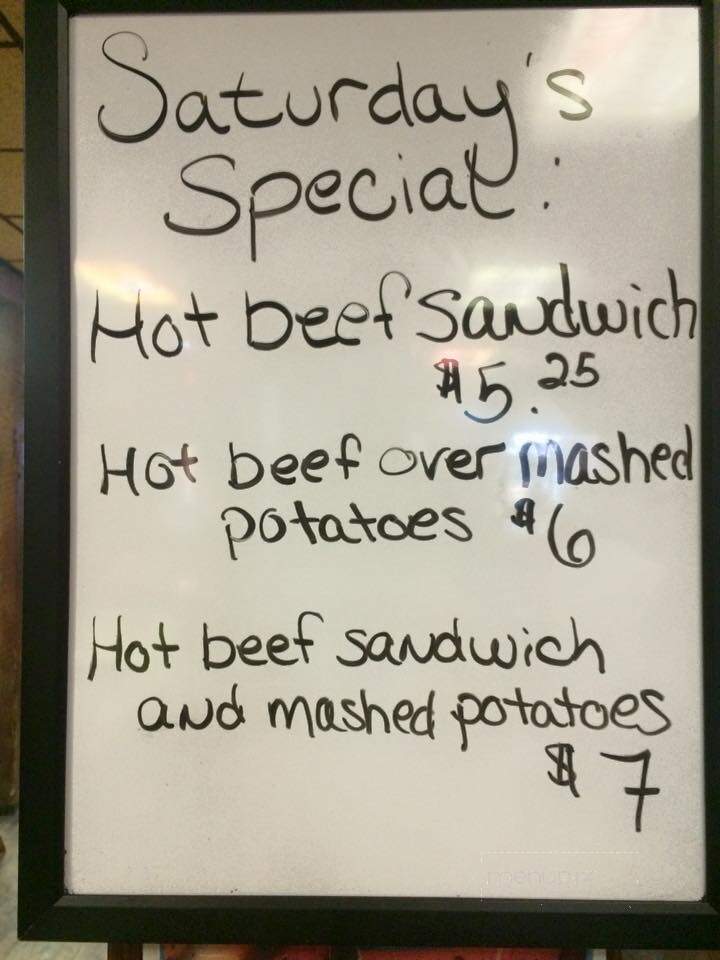 Saturday's
Special:
Hot beef sandwich
$5.25
Hot beef over mashed
potatoes $6
Hot beef sandwich
and mashed potatoes
$7